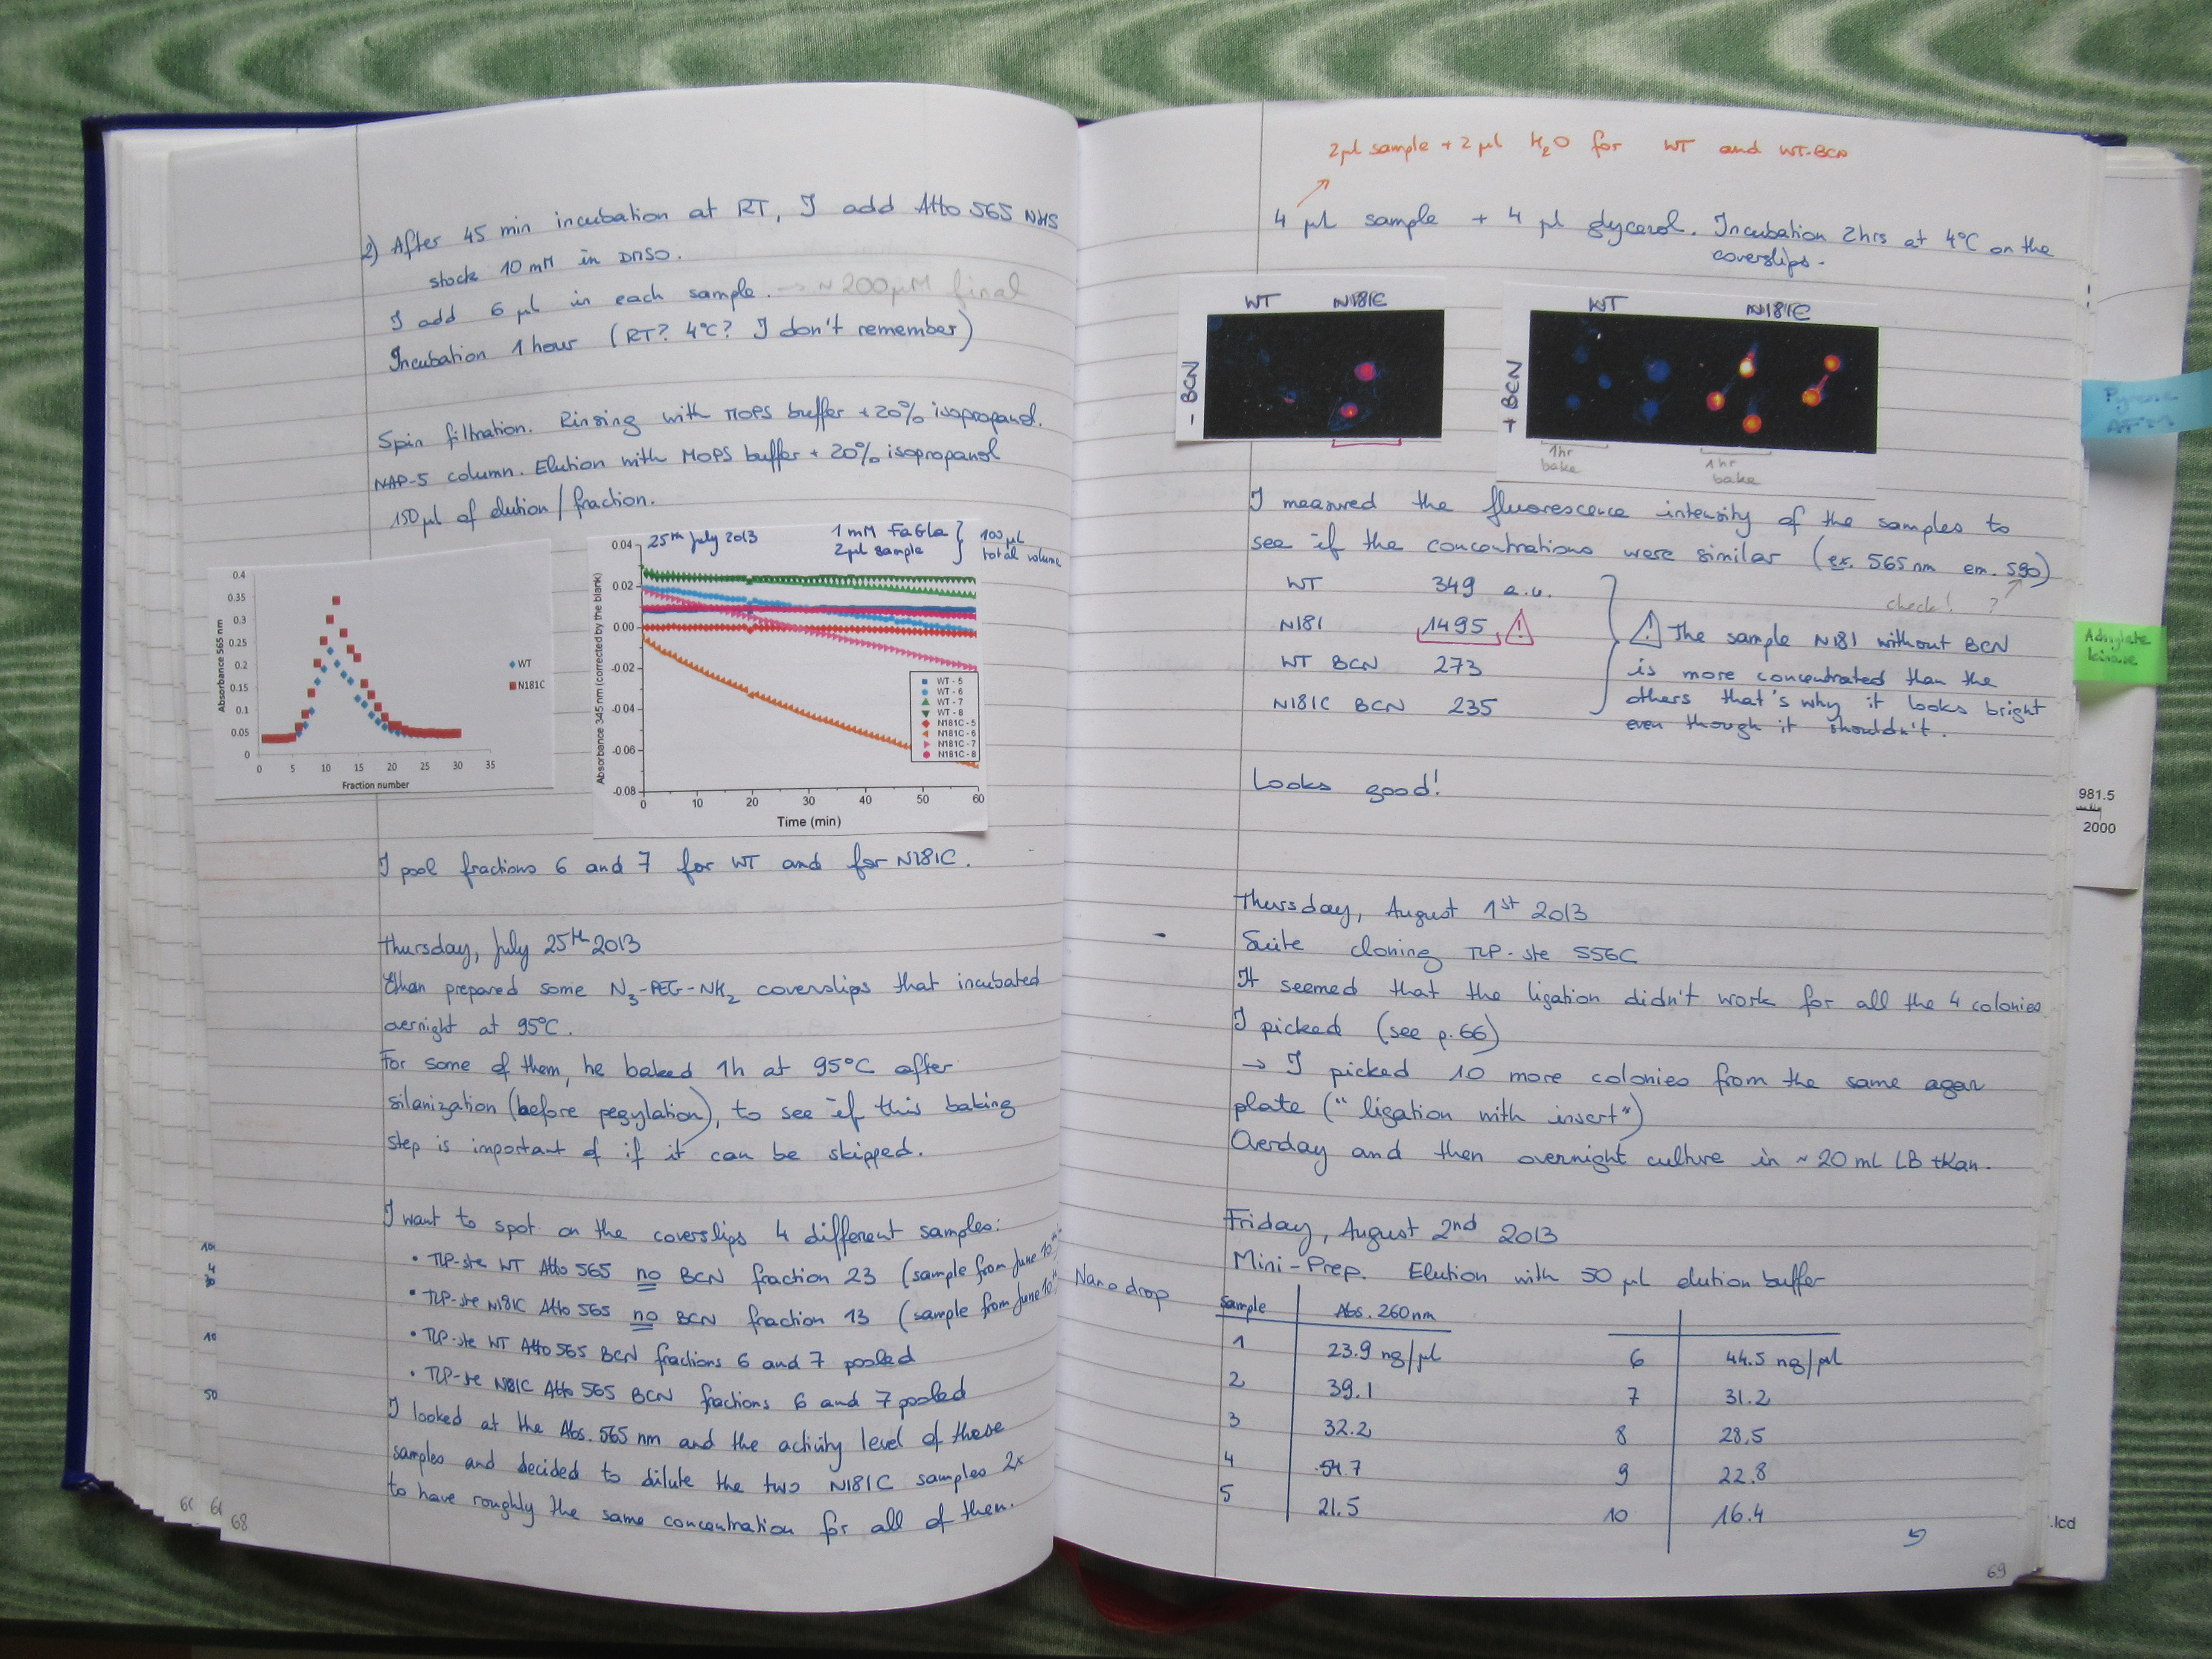 2) After 45 min incubation at RT, I add Atto 565 NHS
stock 10 mM in DMSO.
I add 6 µl in each sample. → ~ 200µM final
Incubation 1 hour (RT? 4°C? I don't remember)
Spin filtration. Rinsing with MOPS buffer + 20% isopropanol.
NAP-5 column. Elution with MOPS buffer + 20% isopropanol
150 µl of elution / fraction.
0.4
0.35
0.3
0.25
0.2
0.15
0.1
0.05
0
Absorbance 565 nm
0 5 10 15 20 25 30 35
Fraction number
WT
N181C
25th July 2013
1 mM FaGla
2µl sample
100 µL
total volume
0.04
0.02
0.00
-0.02
-0.04
-0.06
-0.08
Absorbance 345 nm (corrected by the blank)
WT - 5
WT - 6
WT - 7
WT - 8
N181C - 5
N181C - 6
N181C - 7
N181C - 8
0 10 20 30 40 50 60
Time (min)
I pool fractions 6 and 7 for WT and for N181C.
Thursday, July 25th 2013
Ethan prepared some N3-PEG-NH2 coverslips that incubated
overnight at 95°C.
For some of them, he baked 1h at 95°C after
silanization (before pegylation), to see if this baking
step is important of if it can be skipped.
I want to spot on the coverslips 4 different samples:
• TLP-ste WT Atto 565 no BCN fraction 23 (sample from June 10th
• TLP-ste N181C Atto 565 no BCN fraction 13 (sample from June 10th
• TLP-ste WT Atto 565 BCN fractions 6 and 7 pooled
• TLP-ste N181C Atto 565 BCN fractions 6 and 7 pooled
I looked at the Abs. 565 nm and the activity level of these
samples and decided to dilute the two N181C samples 2x
to have roughly the same concentration for all of them.
10
50
68
2µl sample + 2 µl H2O for WT and WT-BCN
4 µl sample + 4 µl glycerol. Incubation 2hrs at 4°C on the
coverslips.
WT N181C
- BCN
WT N181C
+ BCN
1hr
bake
1hr
bake
I measured the fluorescence intensity of the samples to
see if the concentrations were similar (ex. 565 nm em. 590)
check! ?
WT 349 a.u.
N181 1495 !
WT BCN 273
N181C BCN 235
! The sample N181 without BCN
is more concentrated than the
others that's why it looks bright
even though it shouldn't.
Looks good!
Thursday, August 1st 2013
Suite cloning TLP-ste S56C
It seemed that the ligation didn't work for all the 4 colonies
I picked (see p.66)
→ I picked 10 more colonies from the same agar
plate ("ligation with insert")
Overday and then overnight culture in ~ 20 mL LB +Kan.
Friday, August 2nd 2013
Mini-Prep. Elution with 50 µl elution buffer
Nanodrop
Sample Abs. 260nm
1 23.9 ng/µl 6 44.5 ng/µl
2 39.1 7 31.2
3 32.2 8 28.5
4 54.7 9 22.8
5 21.5 10 16.4
69
Adenylate
kinase
981.5
2000
.lcd